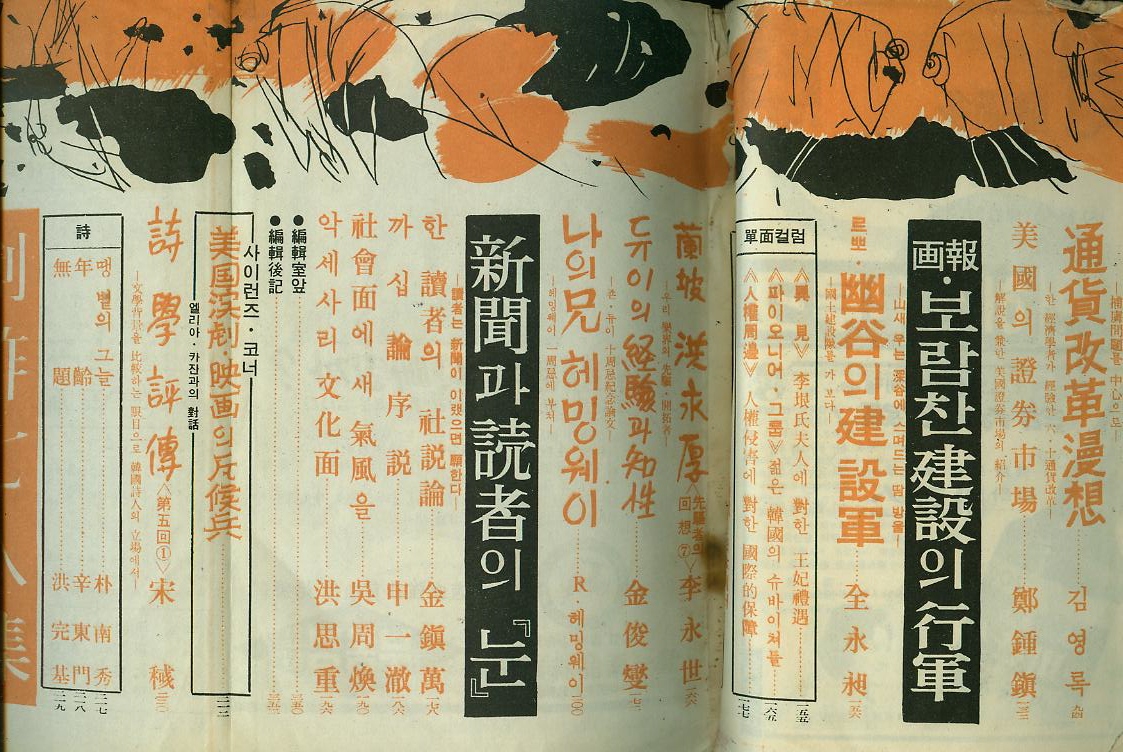 博閑問題를 中心으로
通貨改革漫想 김영록
한 經濟學者가 經驗한 六·十通貨改革
美國의 證券市場 鄭鍾鎭
解說을 兼한 美國證券市場의 紹介
画報·보람찬 建設의 行軍
山새 우는 深谷에 스며드는 땀방울
르뽀·幽谷의 建設軍 全永昶
國土建設隊를 가 보다
單面컬럼
《異見》 李垠氏夫人에 對한 王妃禮遇 一五五
《파이오니어·그룹》 젊은 韓國의 슈바이쳐들 一六五
《人權周邊》 人權侵害에 對한 國際的保障 一七七
蘭坡 洪永厚 〈先驅者의 回想⑦〉 李永世
우리 樂界의 先驅·開拓者
듀이의 經驗과 知性 金俊燮
죤·듀이 十周忌紀念論文
나의 兄 헤밍웨이 R·헤밍웨이
헤밍웨이 一周忌에 부쳐
新聞과 読者의 『눈』
讀者는 新聞이 이랬으면 願한다
한 讀者의 社説論 金鎭萬
까십 論序説 申一澈
社會面에 새 氣風을 吳周煥
악세사리 文化面 洪思重
●編輯室앞
●編輯後記
사이런즈·코너
美国演劇·映画의 斥候兵
엘리아·카잔과의 對話
詩學評傳〈第五回①〉 宋稶
文學背景을 比較하는 眼目으로 韓國詩人의 立場에서
詩
맹별의 그늘 朴南秀 二一七
年齡 辛東門 二一八
無題 洪完基 二一九